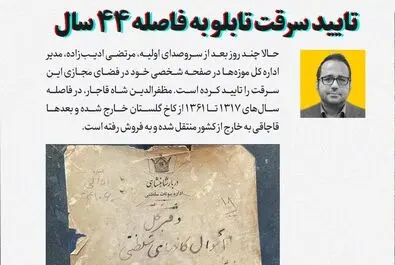 تایید سرقت تابلو به فاصله ۴۴ سال
حالا چند روز بعد از سروصدای اولیه، مرتضی ادیب‌زاده، مدیر
اداره کل موزه‌ها در صفحه شخصی خود در فضای مجازی این
سرقت را تایید کرده است. مظفرالدین شاه قاجار، در فاصله
سال‌های ۱۳۱۷ تا ۱۳۶۱ از کاخ گلستان خارج شده و بعدها
قاچاقی به خارج از کشور منتقل شده و به فروش رفته است.
دربار شاهنشاهی
اداره بیوتات سلطنتی
دفتر کل
اموال کاخهای سلطنتی